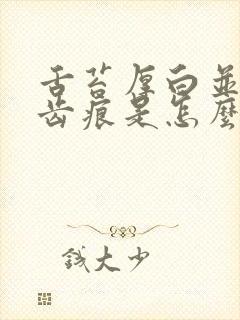 舌苔厚白並
齿痕是怎麼
钱大少